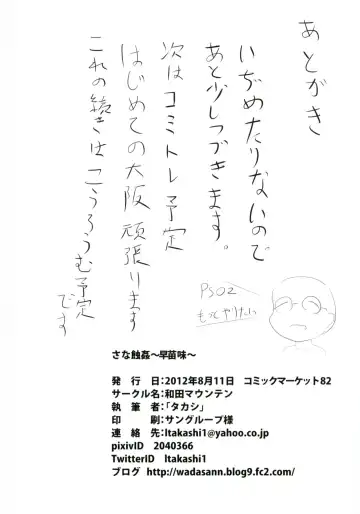 あとがき
いぢめたりないので
あと少しつづきます。
次はコミトレ予定
はじめての大阪頑張ります
これの続きはこうろうむ予定
です
PSO2
もっとやりたいっ
さな触姦～早苗味～
発　行　日：2012年8月11日　コミックマーケット82
サークル名：和田マウンテン
執　筆　者：「タカシ」
印　　　刷：サングループ様
連　絡　先：Itakashi1@yahoo.co.jp
pixivID　2040366
TwitterID　Itakashi1
ブログ　http://wadasann.blog9.fc2.com/